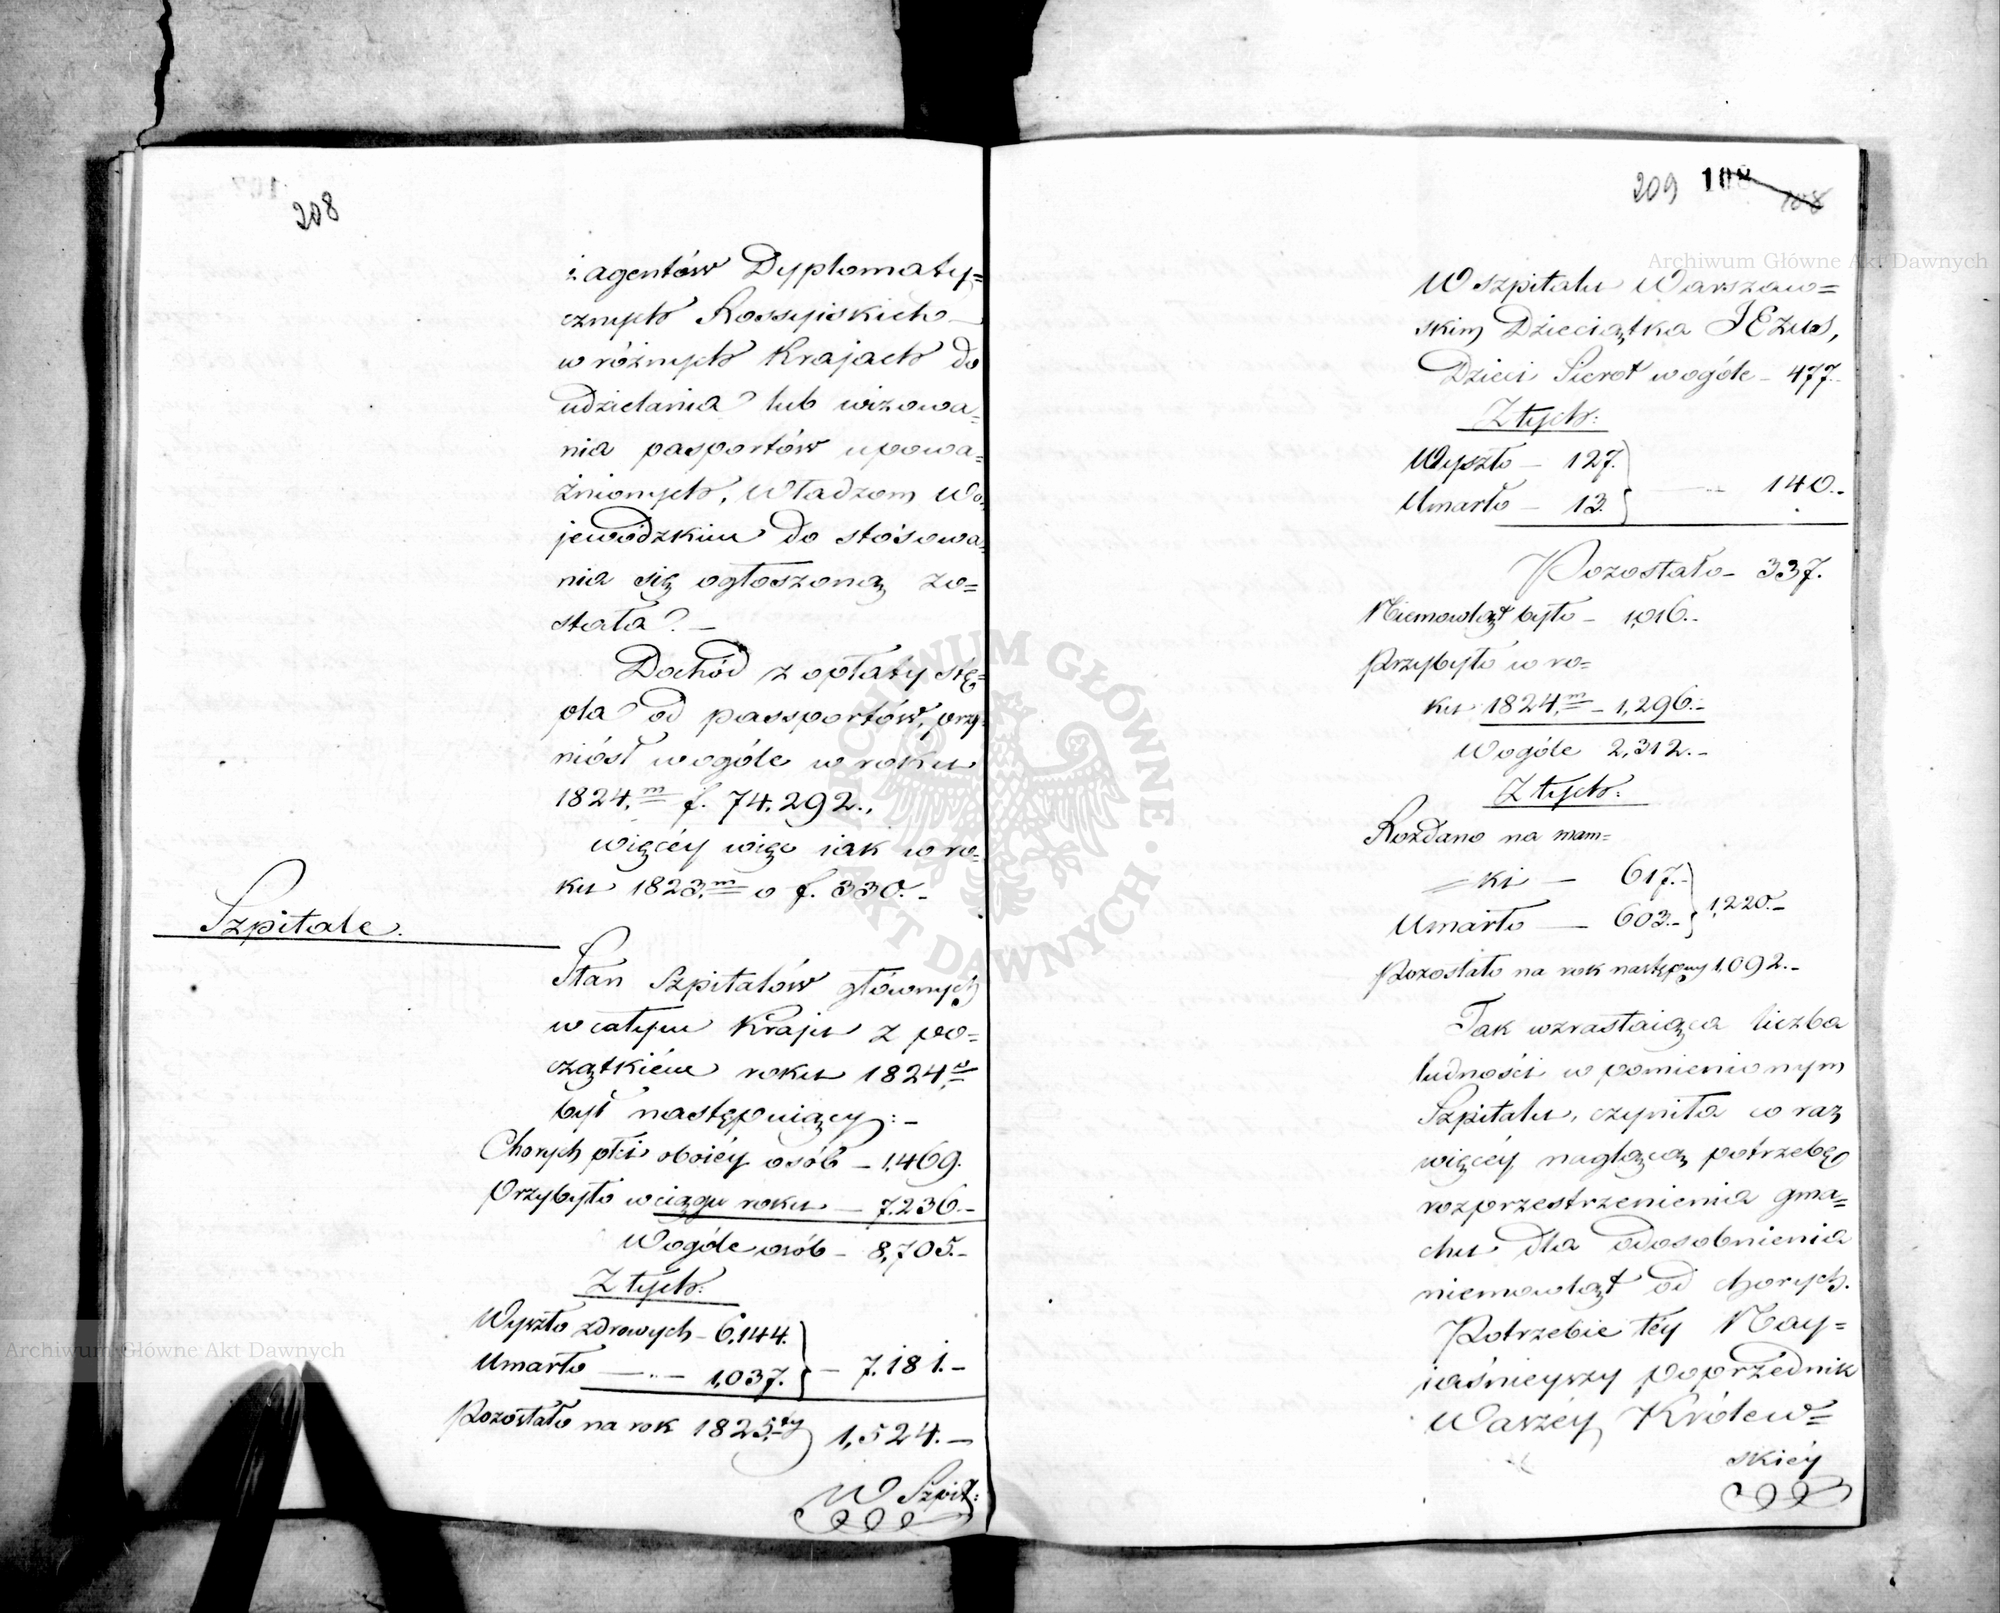 208
i agentów Dyplomaty=
cznych Rossyiskich
w różnych Krajach do
udzielania lub wizowa=
nia pasportów upowa=
żnionych, Władzom Wo=
jewódzkim do stósowa=
nia się ogłoszoną zo=
stała. —
Dochód z opłaty stę=
pla od passportów, przy=
niósł wogóle w roku
1824.m f. 74.292.,
więcéy więc iak w ro=
ku 1823.m o f. 330. —
Szpitale.
Stan Szpitalów głównych
w całym Kraju z po=
czątkiém roku 1824.o
był następuiący: —
Chorych płci oboiéy osób — 1,469.
Przybyło w ciągu roku — 7.236. —
Wogóle osób — 8,705. —
Z tych:
Wyszło zdrowych — 6,144.
Umarło — 1,037. } — 7.181. —
Pozostało na rok 1825.ty 1,524. —
W Szpit:
209 108 108
W szpitalu Warszaw=
skim Dzieciątka JEzus,
Dzieci Sierot wogóle — 477.
Z tych:
Wyszło — 127.
Umarło — 13. } — 140. —
Pozostało — 337.
Niemowląt było — 1,016. —
Przybyło w ro=
ku 1824.m — 1,296. —
Wogóle 2,312. —
Z tych:
Rozdano na mam=
= ki — 617. —
Umarło — 603. — } 1,220. —
Pozostało na rok następny 1,092. —
Tak wzrastaiąca liczba
ludności w pomienionym
Szpitalu, czyniła co raz
więcéy naglącą potrzebę
rozprzestrzenienia gma=
chu dla odosobnienia
niemowląt od chorych.
Potrzebie téy Nay=
iaśnieyszy poprzednik
Waszéy Królew=
skiéy
Archiwum Główne Akt Dawnych
Archiwum Główne Akt Dawnych
ARCHIWUM GŁÓWNE AKT DAWNYCH